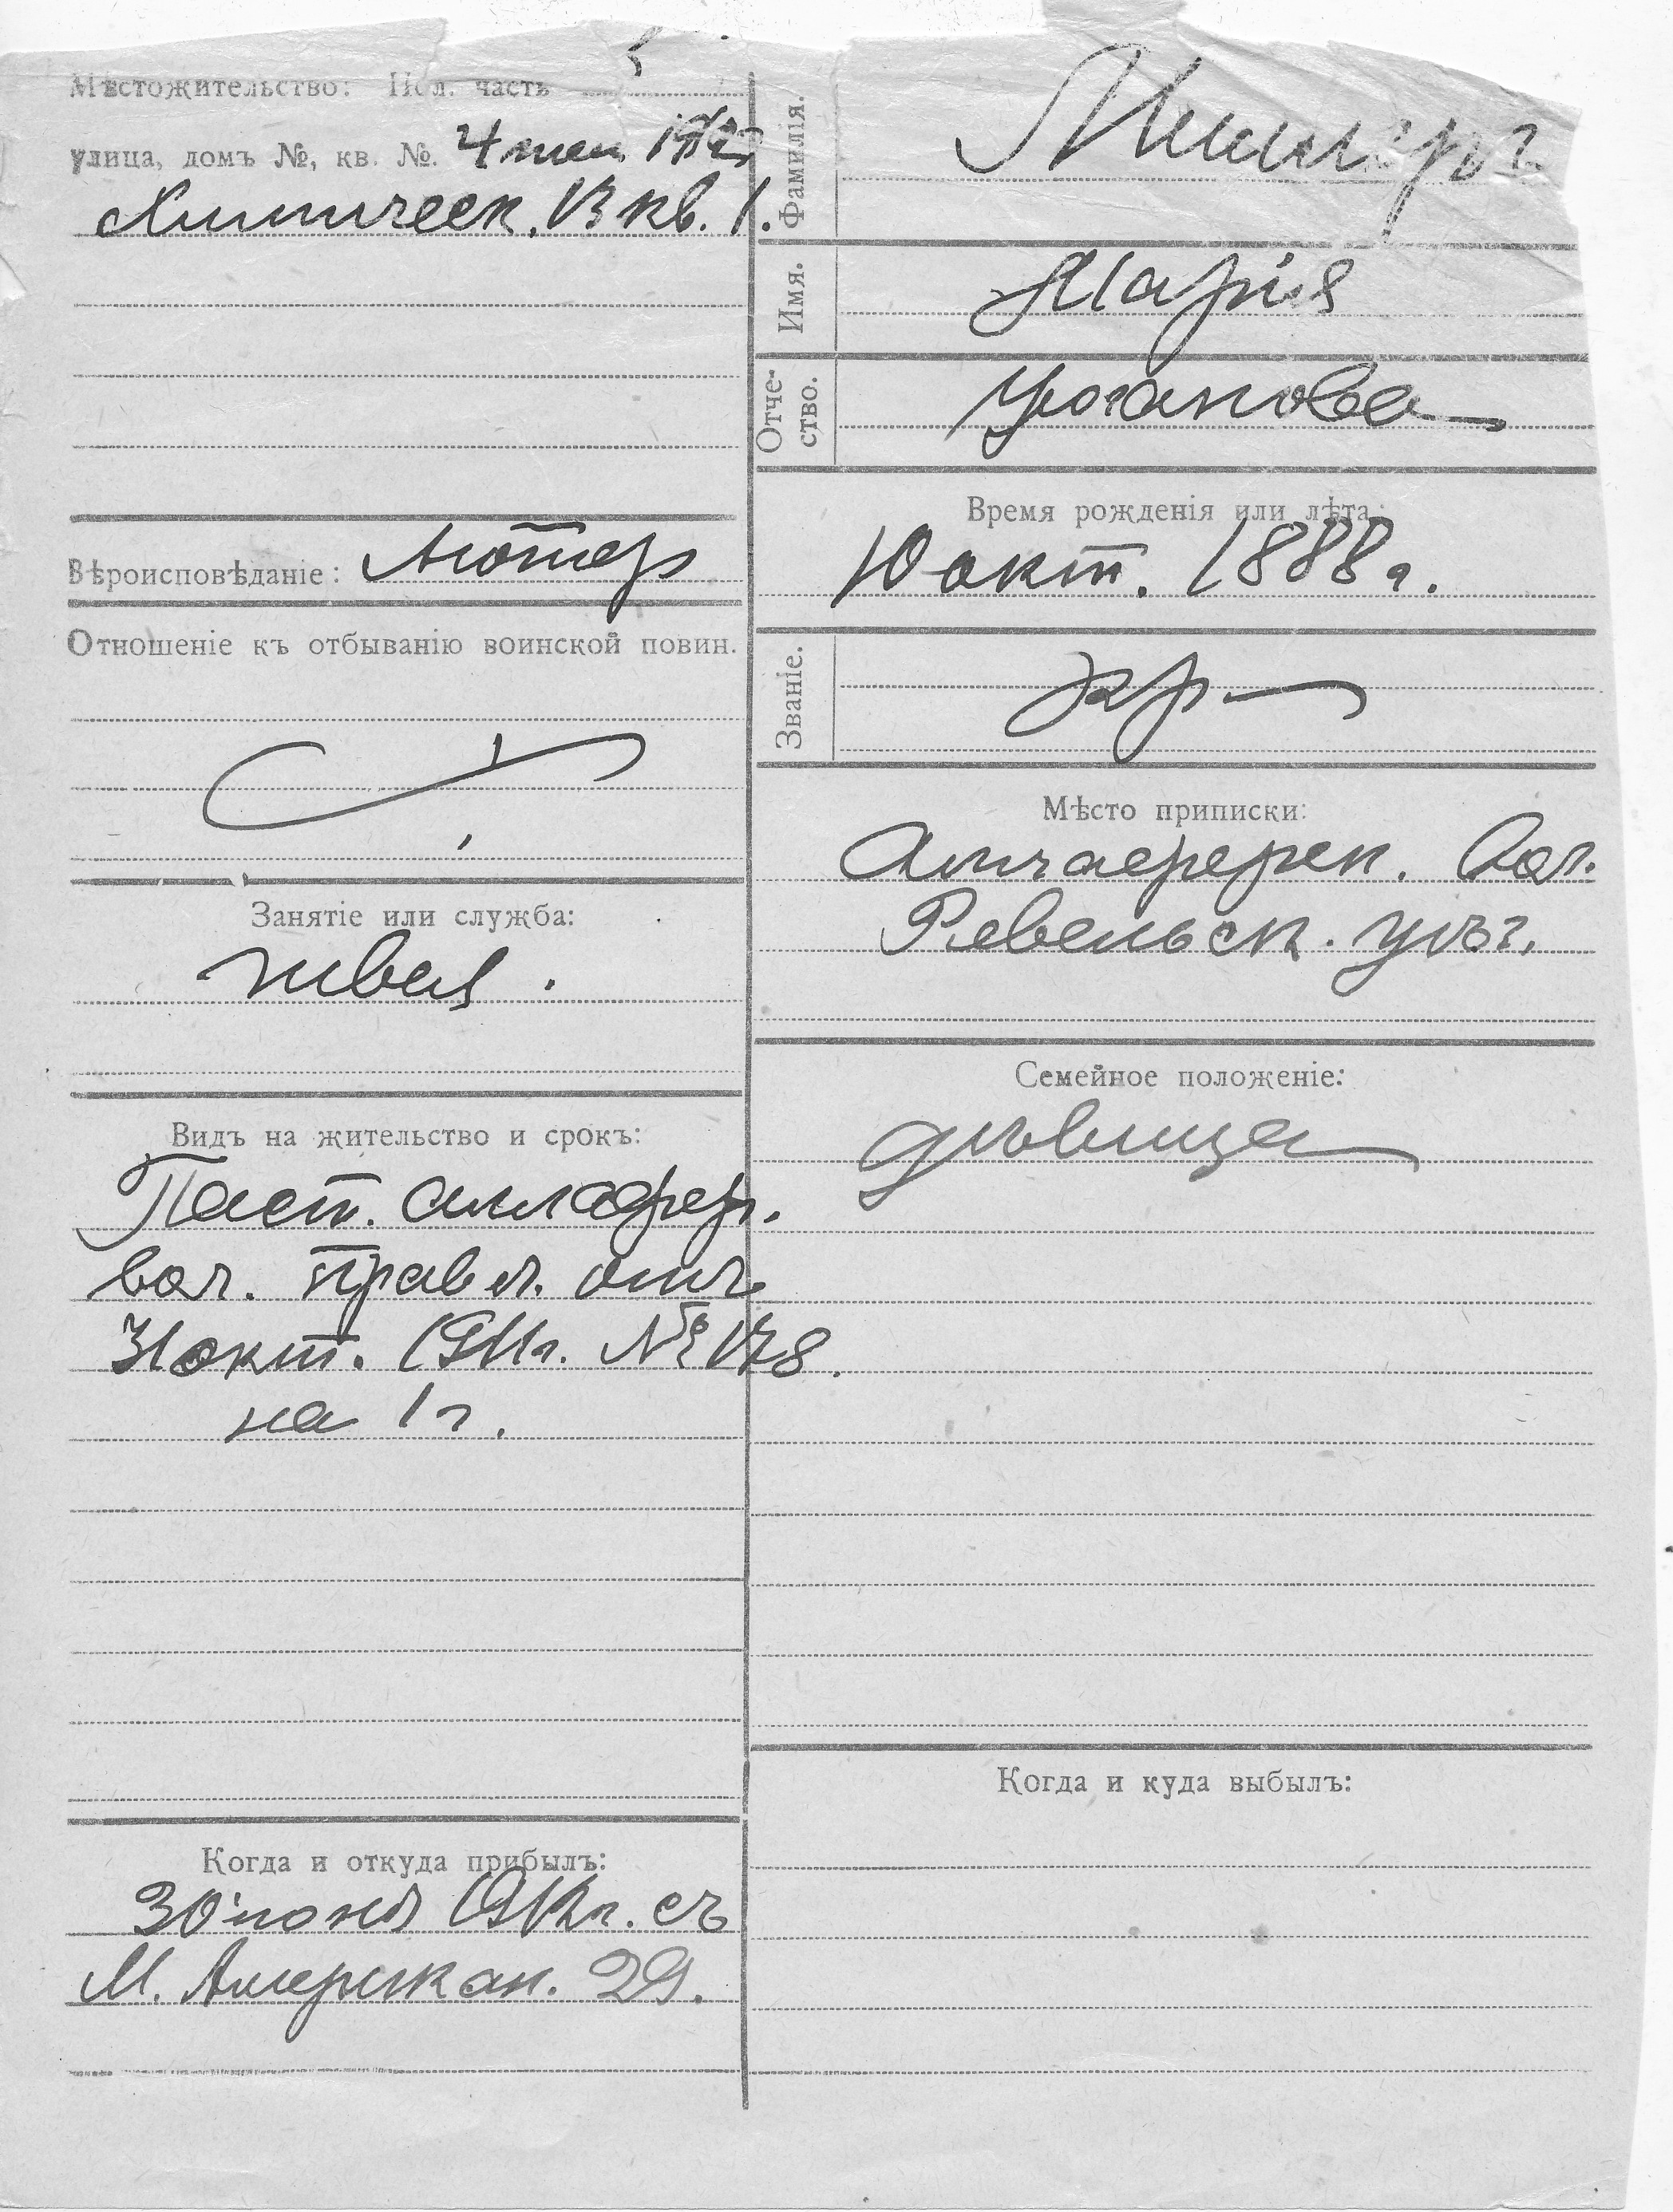 Мѣстожительство: Пол. часть
улица, домъ №, кв. №. 4 1912
Химическ. 13 кв. 1.
Вѣроисповѣданіе: лютер
Отношеніе къ отбыванію воинской повин.
Занятіе или служба:
швея.
Видъ на жительство и срокъ:
Пасп.
вол. правл. отъ
31 окт. 1911 г. № 178.
на 1 г.
Когда и откуда прибылъ:
30 іюня 1912 г. съ
М. Американ. 29.
Фамилія.
Имя. Марія
Отче-
ство. Юганова
Время рожденія или лѣта:
10 окт. 1888 г.
Званіе. кр
Мѣсто приписки:
вол.
Ревельск. уѣз.
Семейное положеніе:
дѣвица
Когда и куда выбылъ: